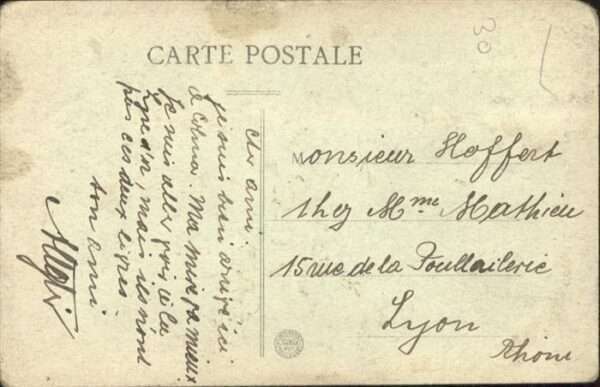 30
CARTE POSTALE
cher ami.
je suis bien arrivé ici
à Ma mère va mieux
Je suis allé voir à la
mais ils n'ont
pas ces deux lignes.
ton ami
Monsieur Hoffert
chez Mme Mathieu
15 rue de la Poullaillerie
Lyon
Rhône